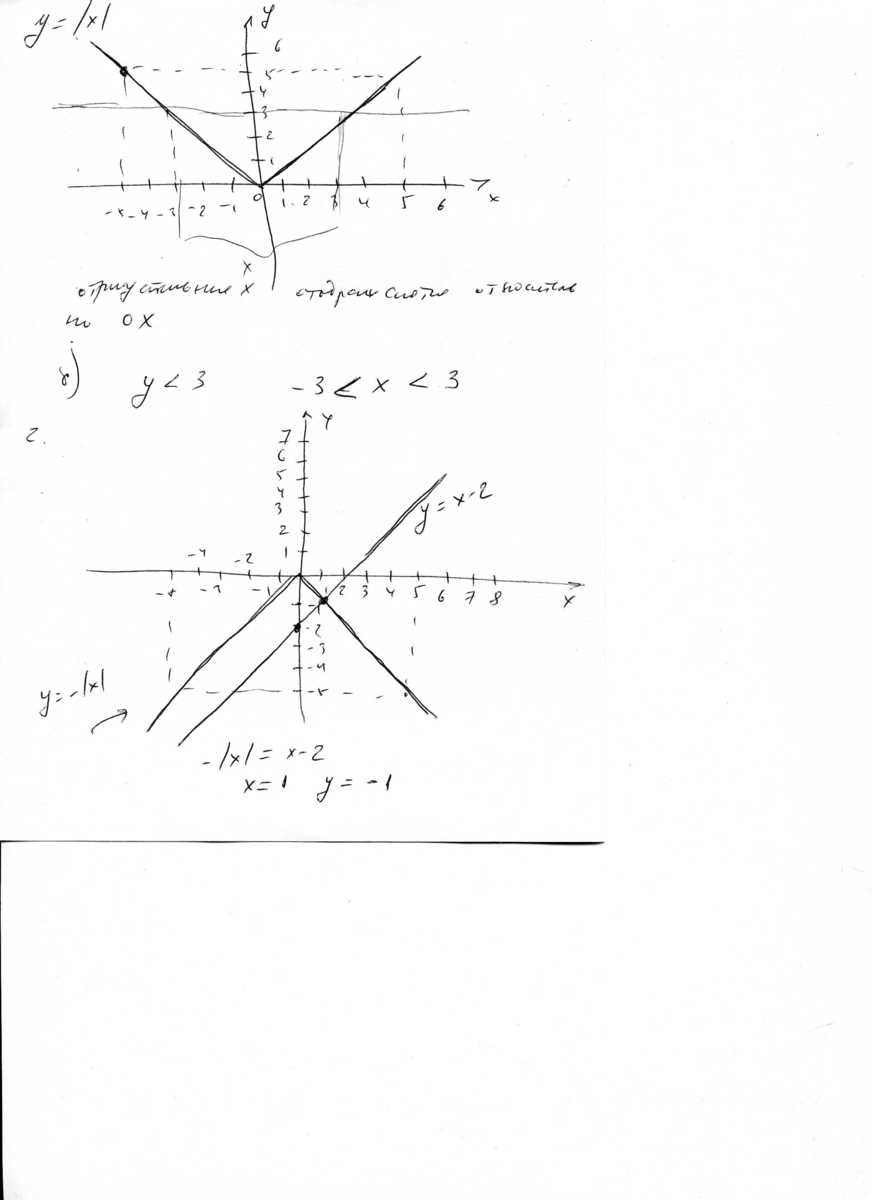 y = |x|
y
6
5
4
3
2
1
-5 -4 -3 -2 -1 0 1 2 3 4 5 6 x
x
отрицательные x отображаются относитель
но OX
y < 3 -3 < x < 3
2.
y
7
6
5
4
3
2
1
-4 -2
-5 -3 -1 1 2 3 4 5 6 7 8 x
y = x-2
-1
-2
-3
-4
-5
y = -|x|
-|x| = x-2
x = 1 y = -1